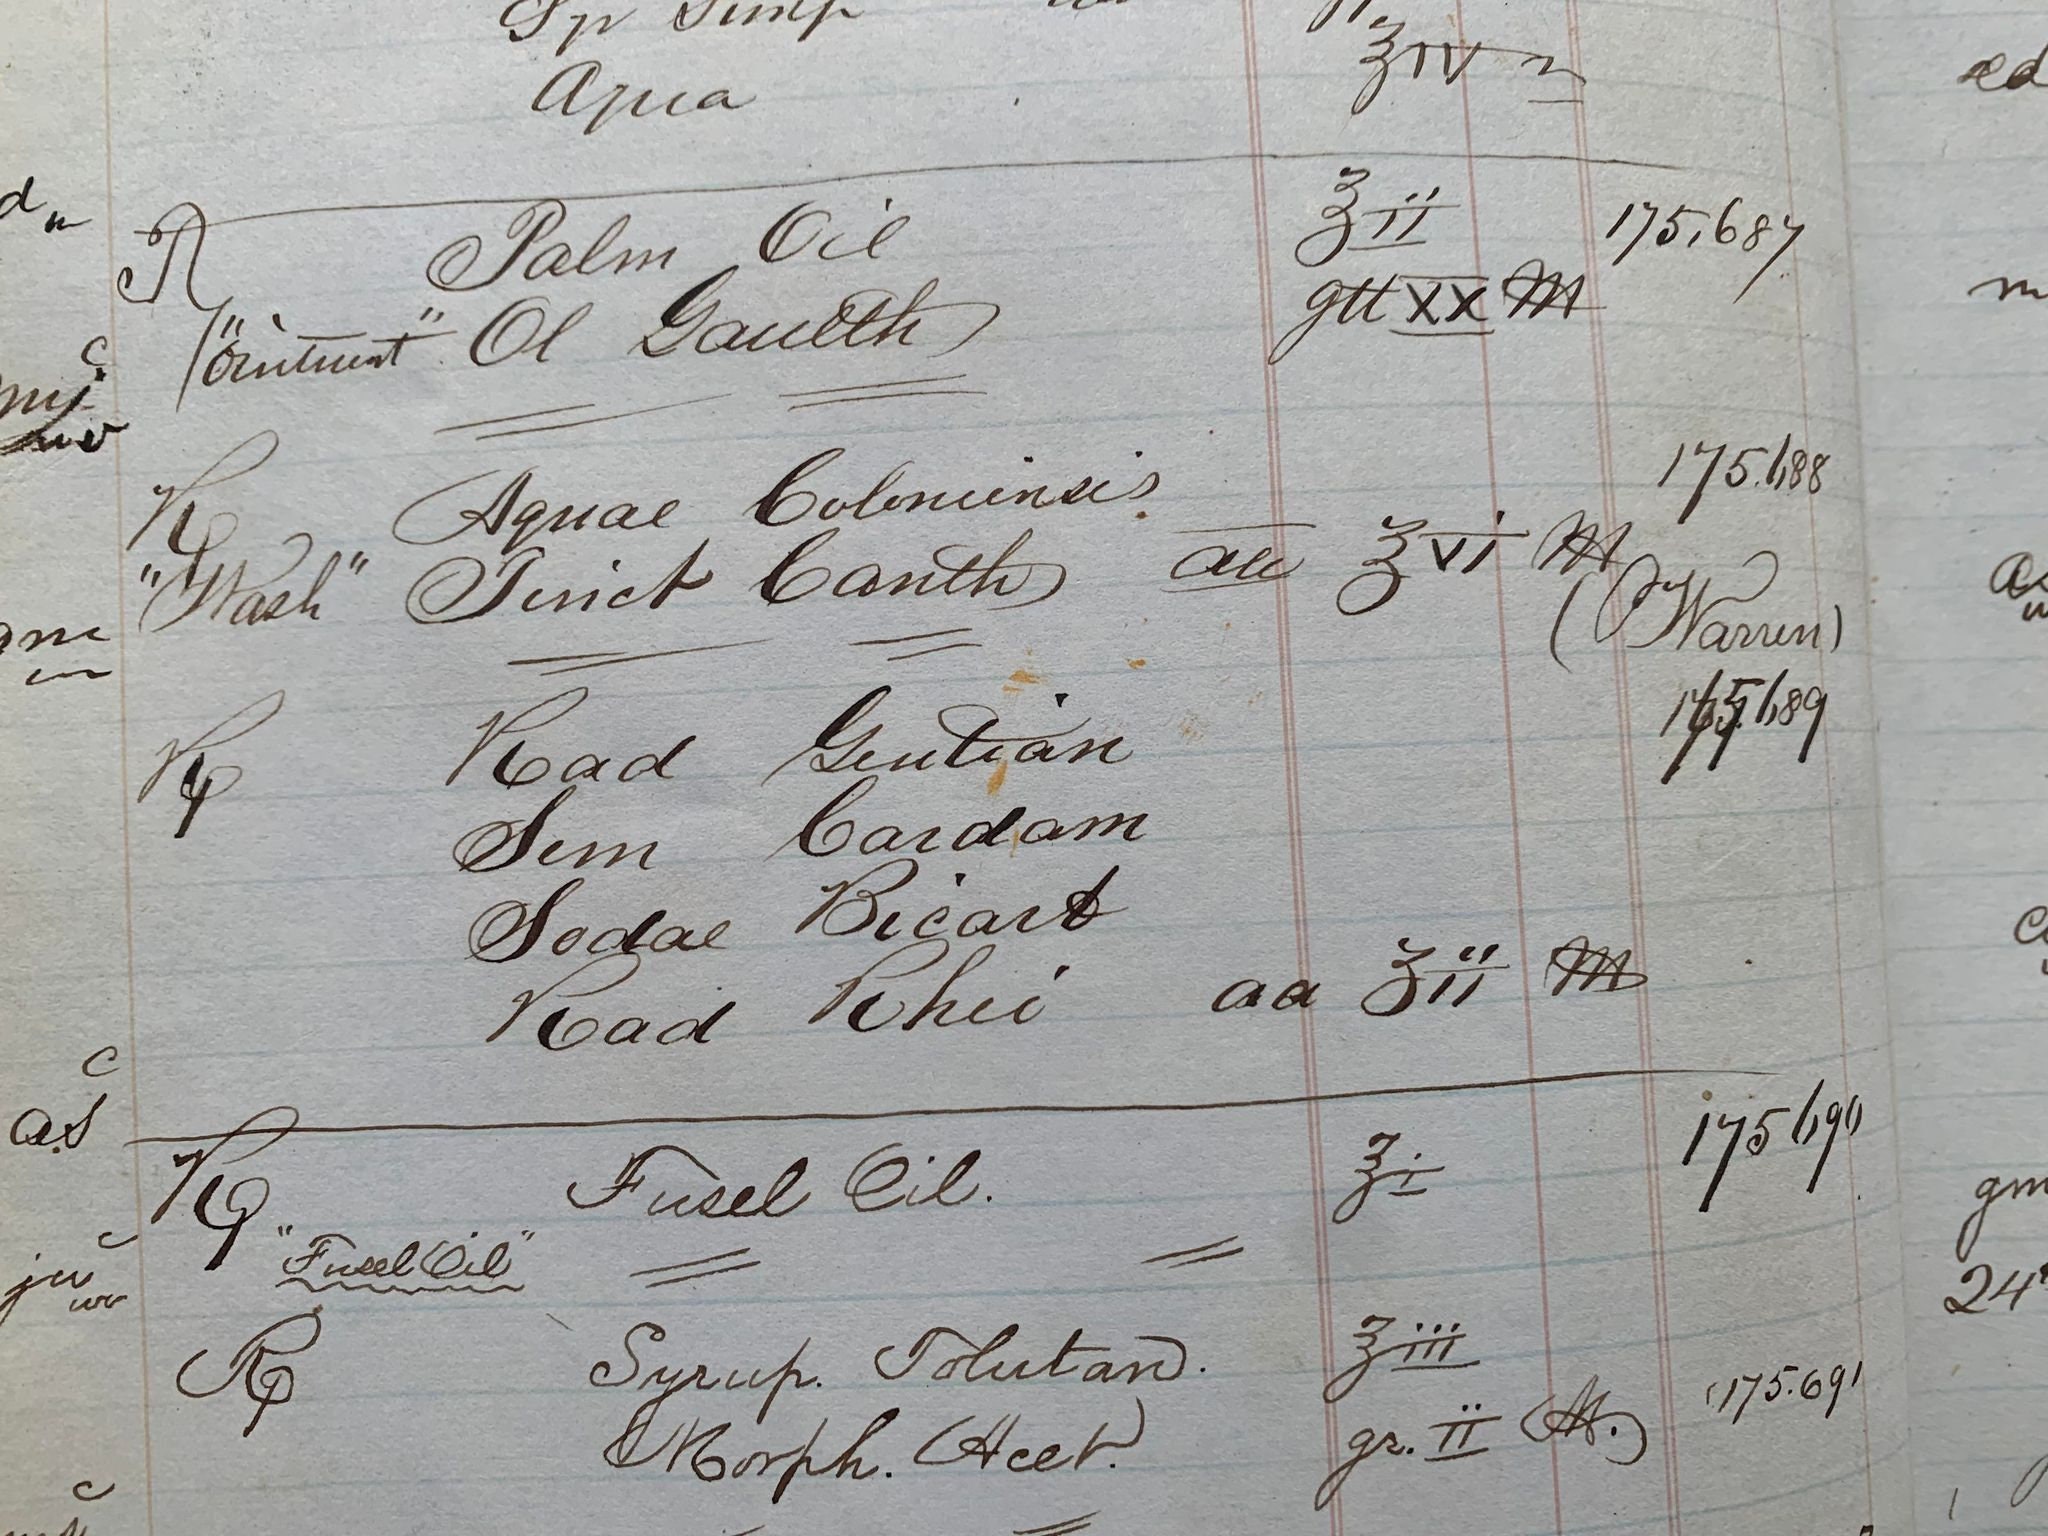 Aqua ℥iv
℞ Palm Oil ℥ii 175,687
"Ointment" Ol Gaulth gtt XX M
℞ Aquae Coloniensis 175.688
"Wash" Tinct Canth aa ℥vi M
(Warren)
℞ Rad Gentian 175.689
Sem Cardam
Sodae Bicarb
Rad Rhei aa ʒii M
℞ Fusel Oil. ℥i 175690
"Fusel Oil"
℞ Syrup. Tolutan. ℥iii 175.691
Morph. Acet. gr. ii M.